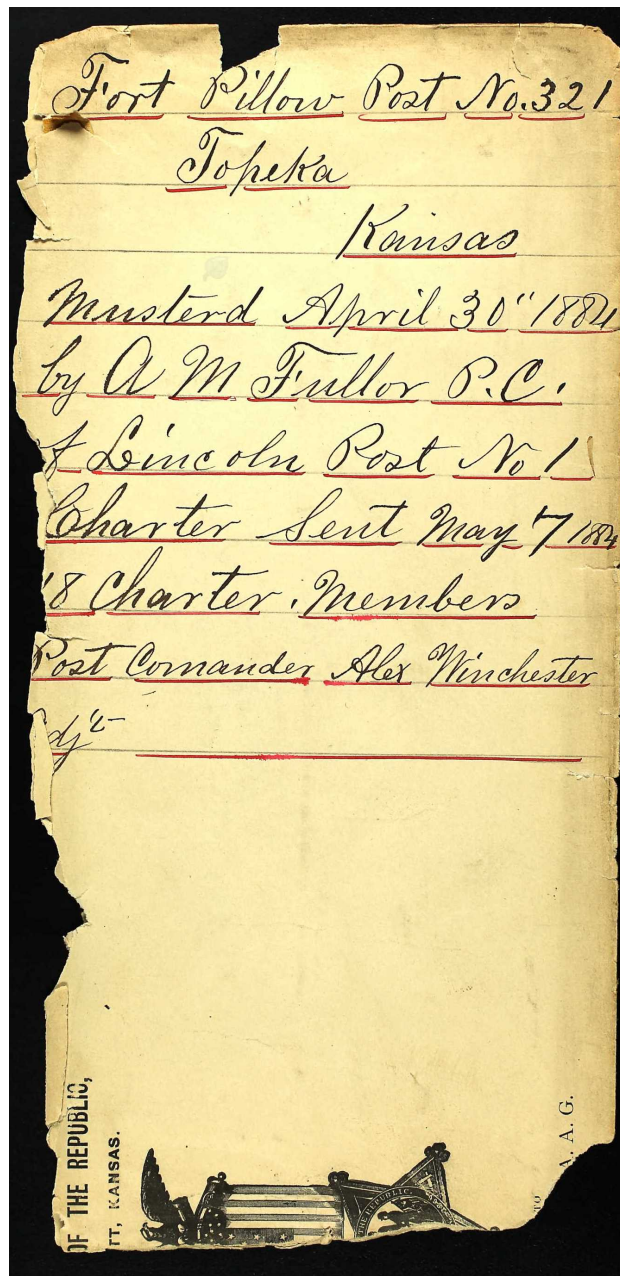 Fort Pillow Post No. 321
Topeka
Kansas
Musterd April 30" 1884
by A M Fullor P.C.
of Lincoln Post No 1
Charter Sent May 7 1884
18 Charter Members
Post Comander Alex Winchester
dj't
OF THE REPUBLIC,
TT, KANSAS.
THE REPUBLIC
TO
A. A. G.